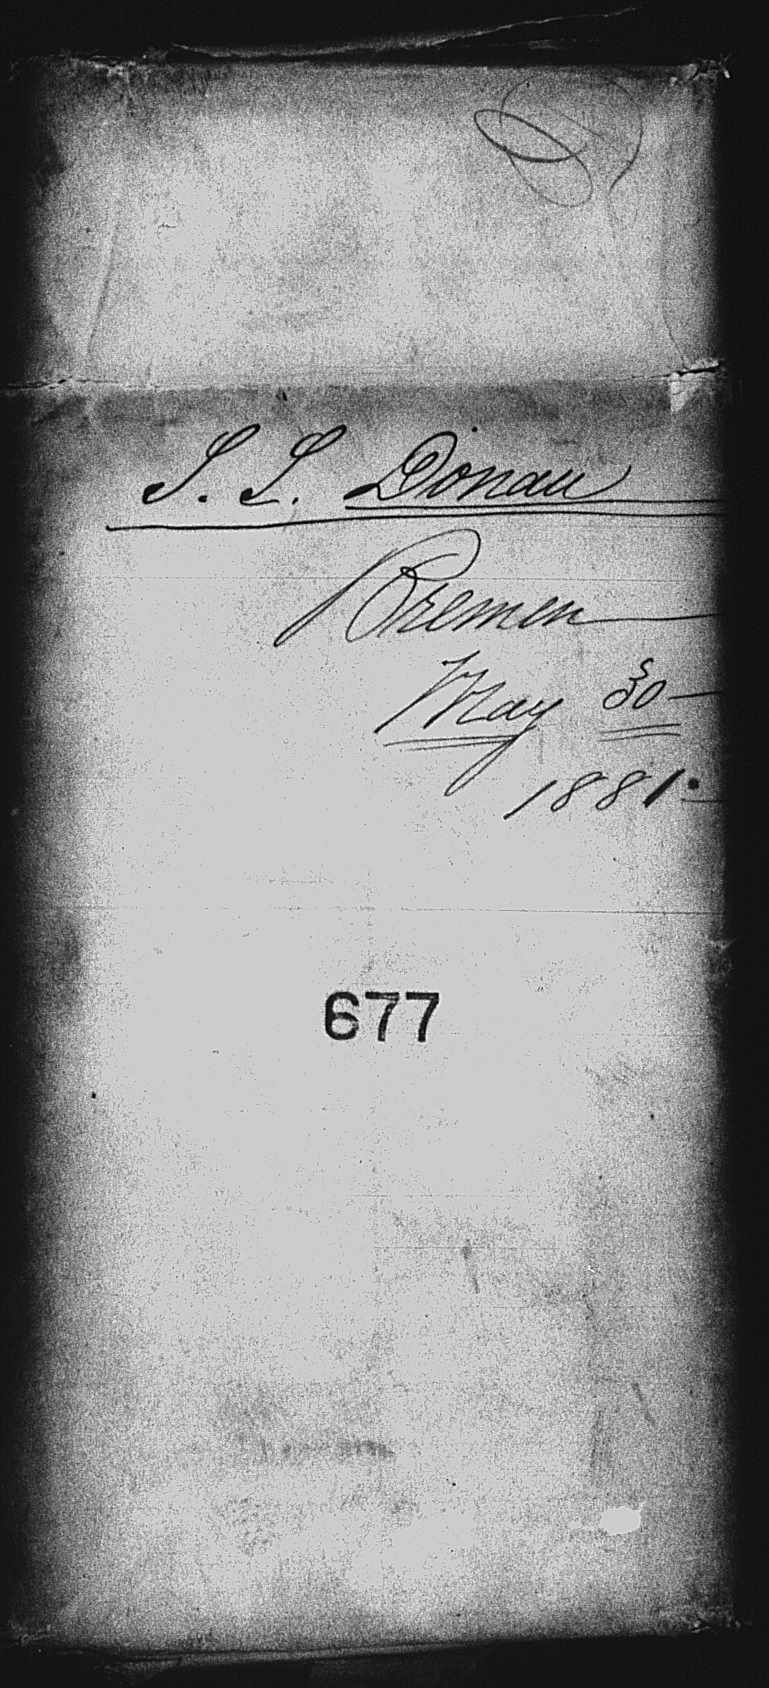 S. S. Donau
Bremen
May 30
1881.
677